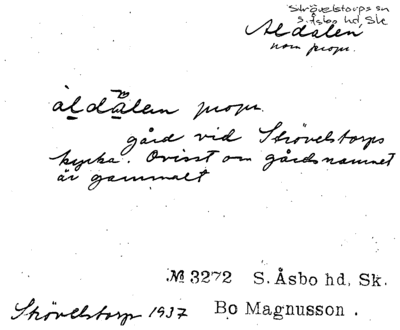 Strövelstorps sn
S. Åsbo hd, Sk
Åldalen
nom propr.
propr.
gård vid Strövelstorps
kyrka. Ovisst om gårdsnamnet
är gammalt
№ 3272 S. Åsbo hd, Sk.
Strövelstorp 1937 Bo Magnusson.